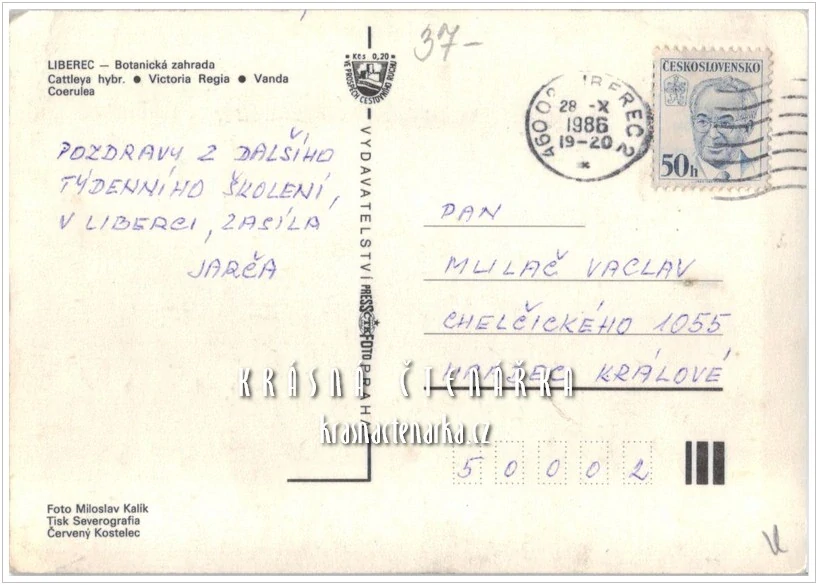 LIBEREC — Botanická zahrada
Cattleya hybr. ● Victoria Regia ● Vanda
Coerulea
POZDRAVY Z DALŠÍHO
TÝDENNÍHO ŠKOLENÍ,
V LIBERCI, ZASÍLÁ
JARČA
Kčs 0,20
VE PROSPĚCH CESTOVNÍHO RUCHU
VYDAVATELSTVÍ PRESSFOTO PRAHA
ČTK
37-
460 02 LIBEREC 2
28 -X
1986
19-20
*
ČESKOSLOVENSKO
50h
PAN
MULAČ VACLAV
CHELČICKÉHO 1055
HRADEC KRÁLOVÉ
50002
KRÁSNÁ ČTENÁŘKA
krasnactenarka.cz
Foto Miloslav Kalik
Tisk Severografia
Červený Kostelec